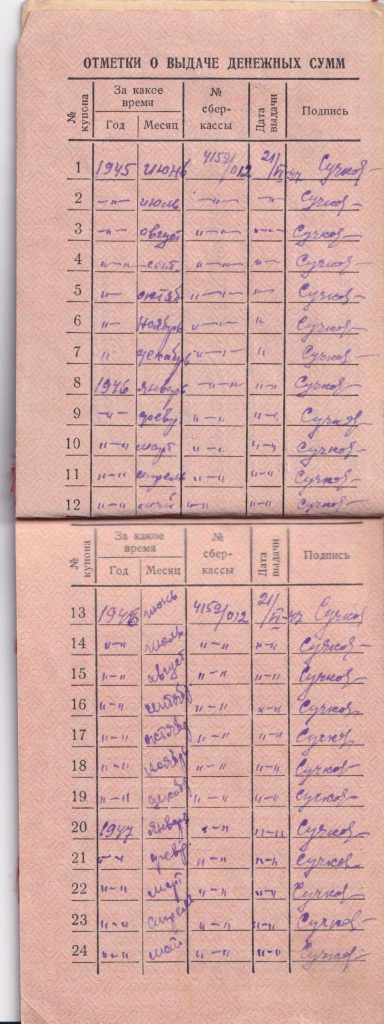 ОТМЕТКИ О ВЫДАЧЕ ДЕНЕЖНЫХ СУММ
№ купона За какое время № сбер-кассы Дата выдачи Подпись
Год Месяц
1 1945 июнь 4159/012 21/VI-47 Сучков
2 -"- июль -"- -"- Сучков
3 -"- август "-"- "-"- Сучков
4 -"-" сент. "-"- "-"- Сучков
5 "- октяб "-"- "-" Сучков
6 "- ноябрь "-"- " Сучков
7 " декабрь "-"- " Сучков
8 1946 январь -"-" "-" Сучков
9 -"- февр "-" "-" Сучков
10 "-" март "-" "-" Сучков
11 "-" апрель "-" "-" Сучков
12 "-" май "-" "-" Сучков
№ купона За какое время № сбер-кассы Дата выдачи Подпись
Год Месяц
13 1946 июнь 4159/012 21/VI-47 Сучков
14 "-" июль "-" "-" Сучков
15 "-" август "-" "-" Сучков
16 "-" сентябр "-" "-" Сучков
17 "-" октябр "-" "-" Сучков
18 "-" ноябр "-" "-" Сучков
19 "-" декабр "-" "-" Сучков
20 1947 январь "-" "-" Сучков
21 "-" февр "-" "-" Сучков
22 "-" март "-" "-" Сучков
23 "-" апрель "-" "-" Сучков
24 "-" май "-" "-" Сучков